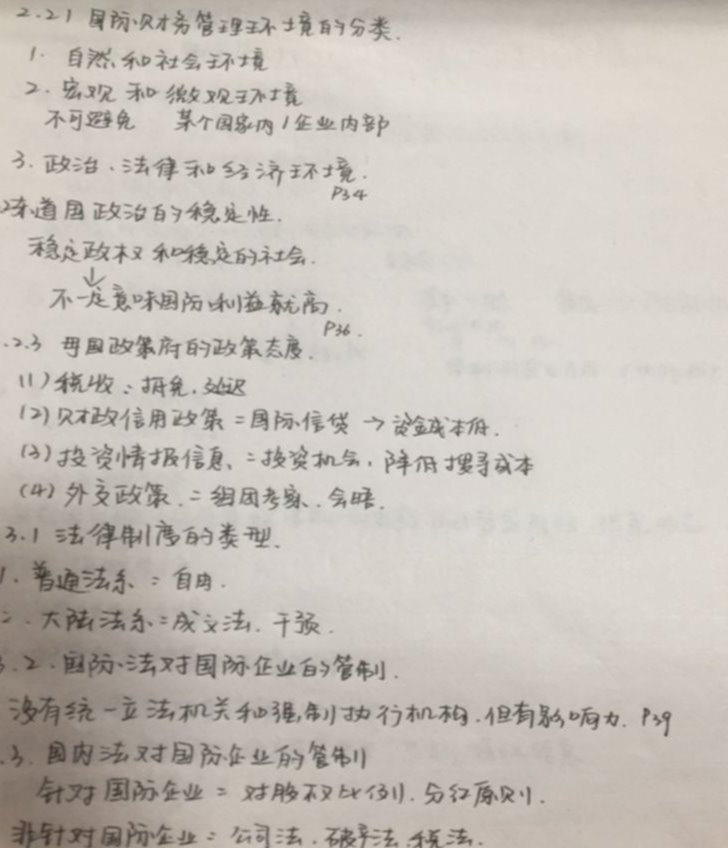 2.21 国际财务管理环境的分类.
1. 自然和社会环境
2. 宏观和微观环境
不可避免 某个国家内/企业内部
3. 政治、法律和经济环境.
P34
东道国政治的稳定性.
稳定政权和稳定的社会.
↓
不一定意味国际利益就高.
P36.
.2.3 母国政策府的政策态度.
(1) 税收:抵免.延迟
(2) 财政信用政策=国际信贷→资金成本低.
(3) 投资情报信息.=投资机会,降低搜寻成本
(4) 外交政策.=组团考察.会晤.
3.1 法律制度的类型.
1. 普通法系:自由.
2. 大陆法系:成文法.干预.
3.2.国际法对国际企业的管制.
没有统一立法机关和强制执行机构.但有影响力. P39
.3.国内法对国际企业的管制
针对国际企业=对股权比例.分红原则.
非针对国际企业:公司法.破产法.税法.